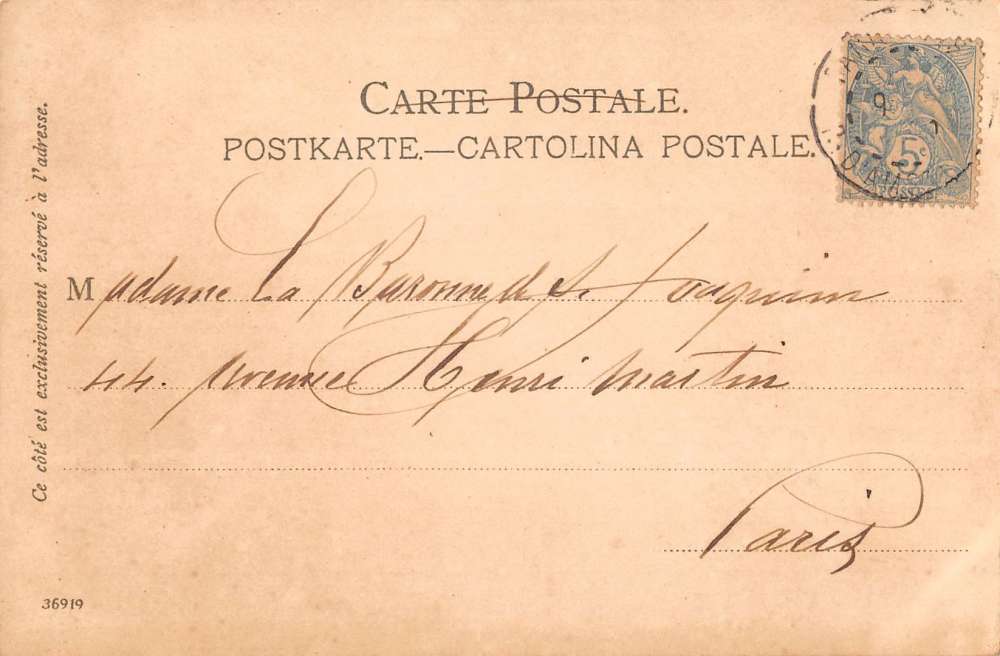 CARTE POSTALE.
POSTKARTE.—CARTOLINA POSTALE.
Ce côté est exclusivement réservé à l'adresse.
5c
Madame La Baronne de S. Joaquim
44. Avenue Henri Martin
Paris
36919